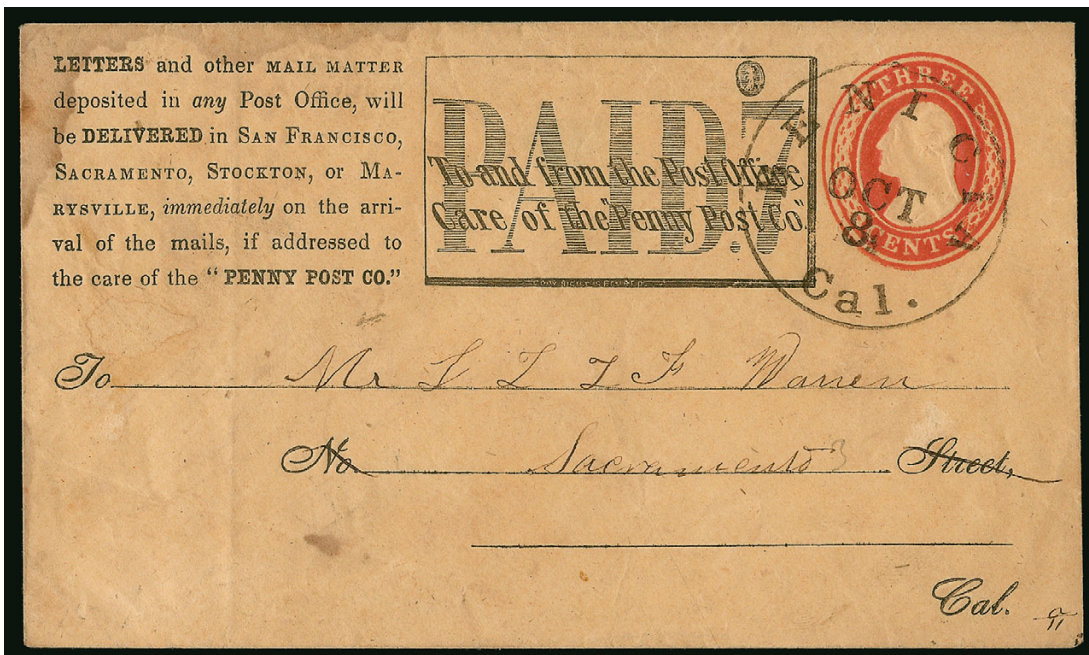 LETTERS and other MAIL MATTER
deposited in any Post Office, will
be DELIVERED in SAN FRANCISCO,
SACRAMENTO, STOCKTON, or MA-
RYSVILLE, immediately on the arri-
val of the mails, if addressed to
the care of the "PENNY POST CO."
PAID.7
To and from the Post Office
Care of the "Penny Post Co."
COPY RIGHT SECURED
THREE
CENTS
BENICIA
OCT
8
Cal.
To Mr Warren
No Sacramento Street,
Cal.